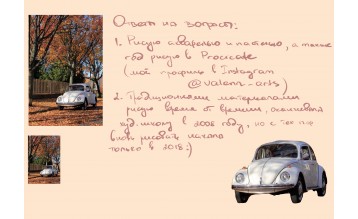 Ответы на вопросы:
1. Рисую акварелью и пастелью, а также
год рисую в Procreate
(мой профиль в Instagram
@valana_arts)
2. Традиционными материалами
рисую время от времени, оканчивала
худ. школу в 2008 году, но с тех пор
вновь рисовать начала
только в 2018:)